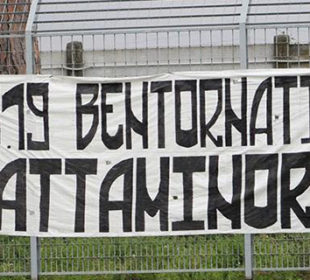 .19 BENTORNATI
ATTAMINOR